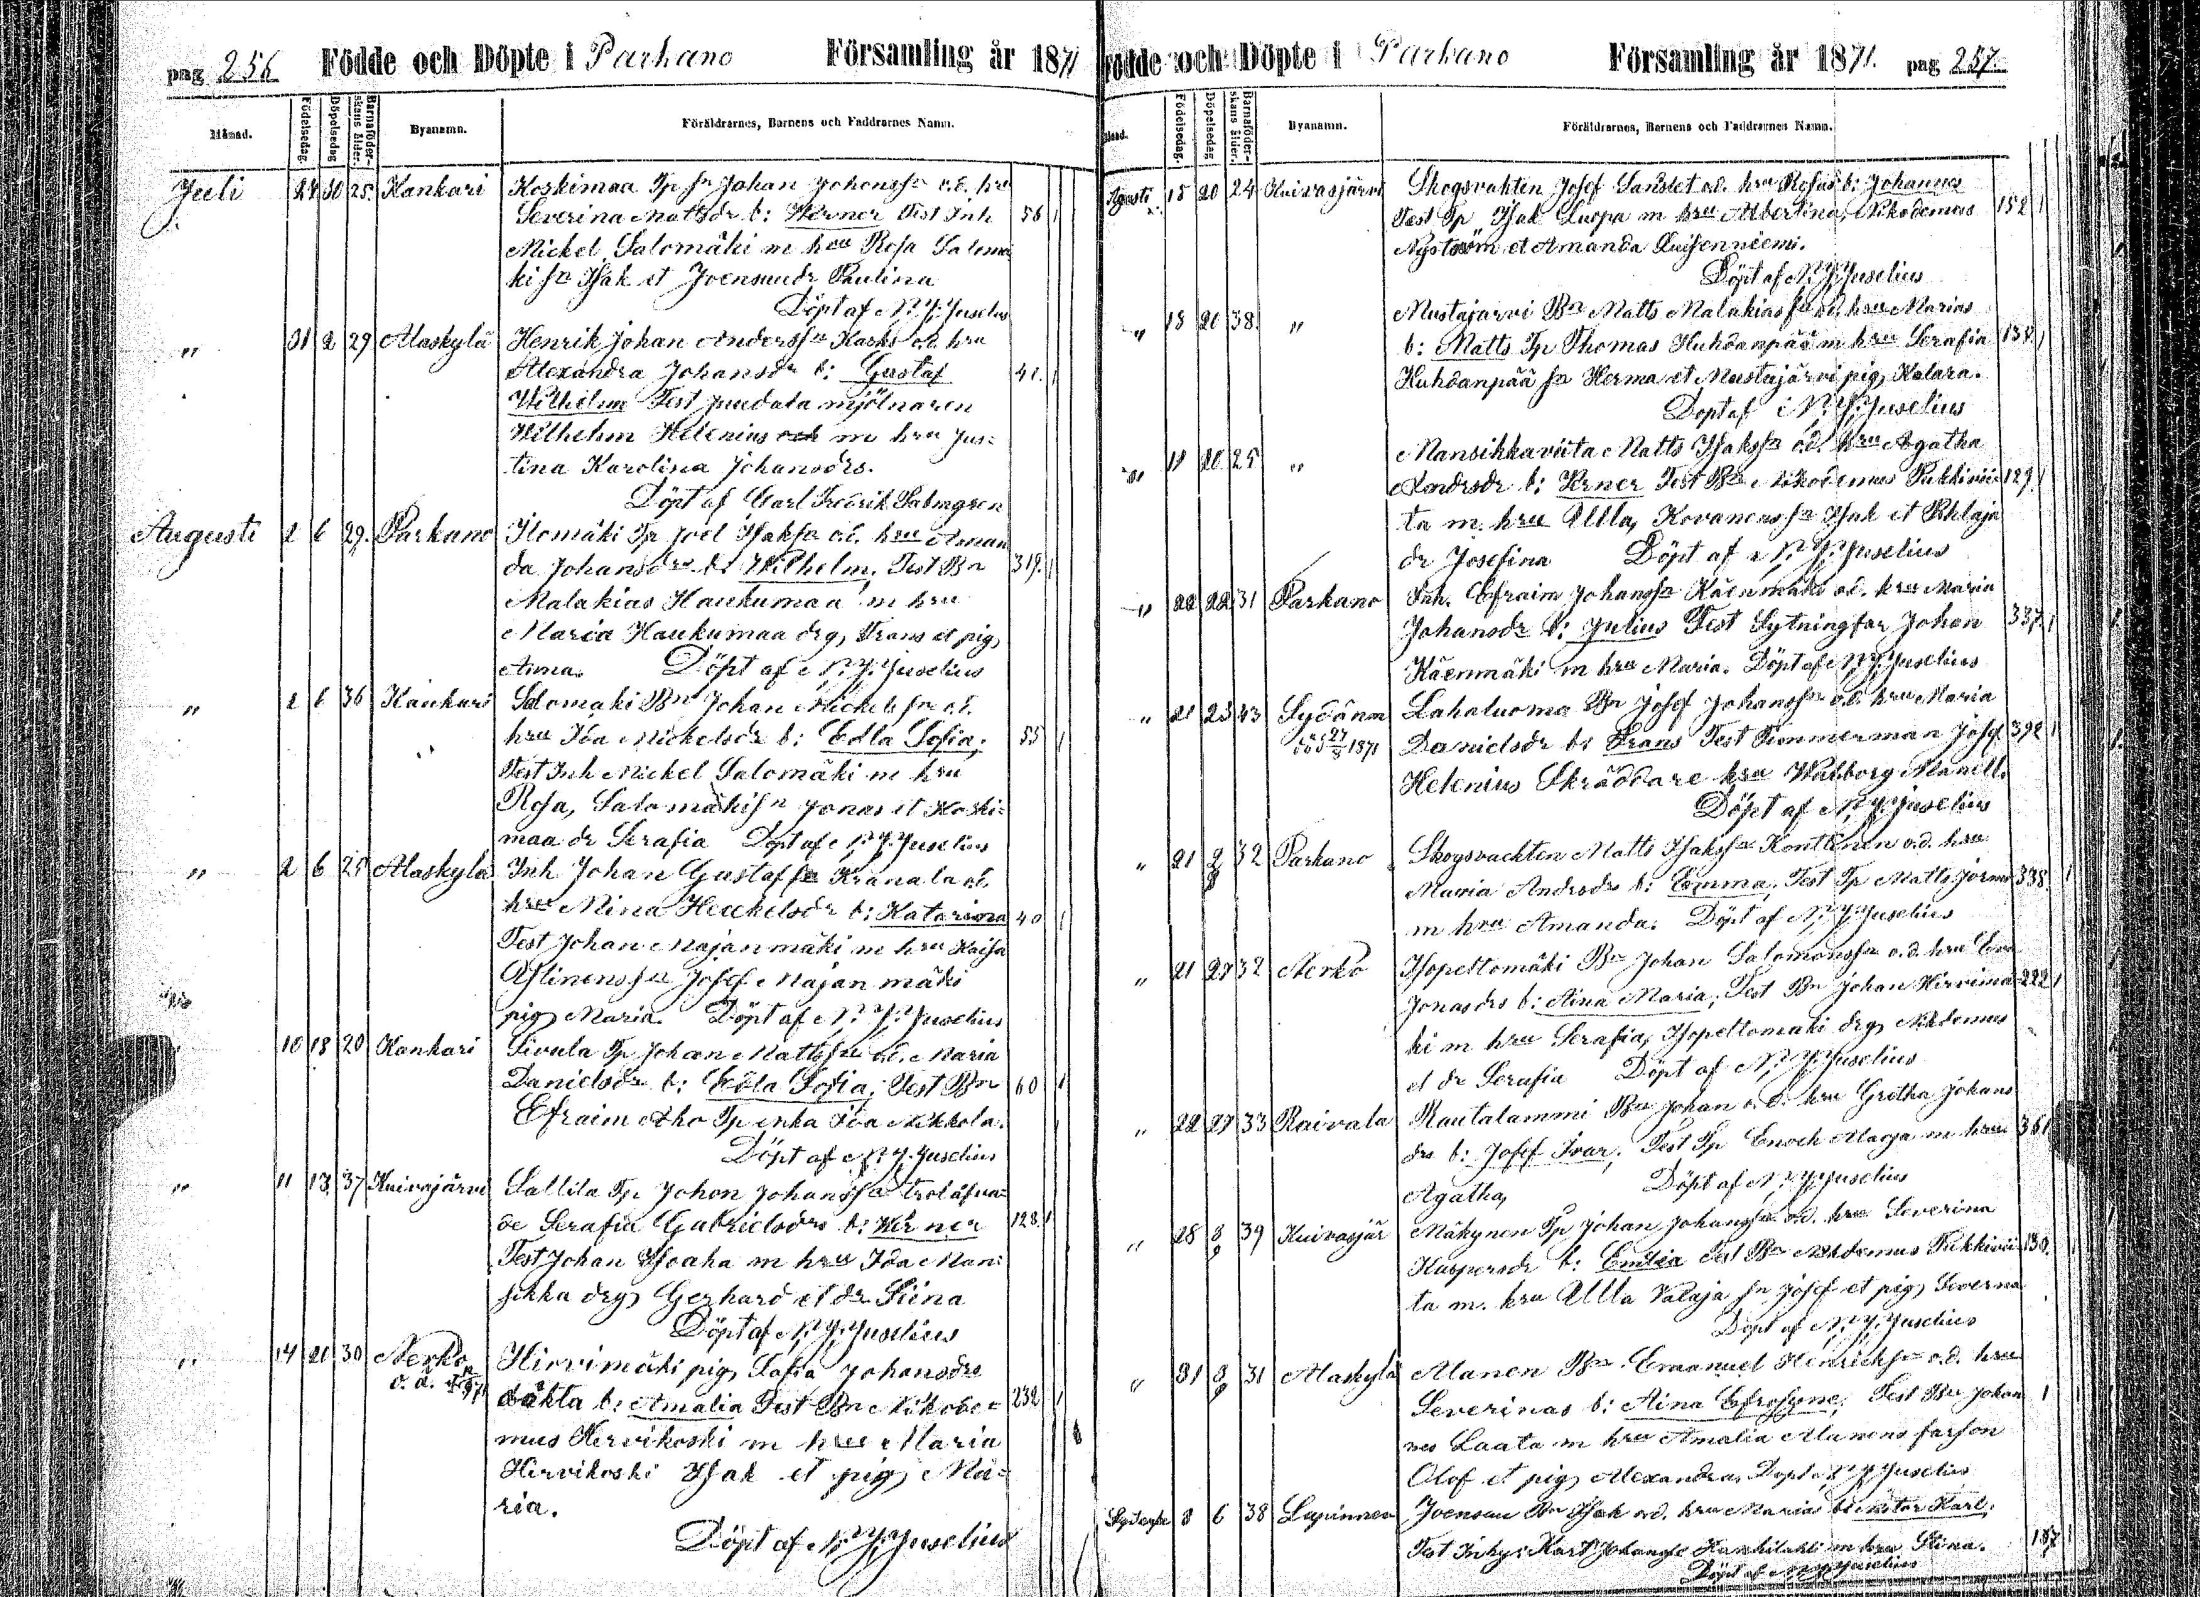 pag 256 Födde och Döpte i Parkano Församling år 1871
Månad. Födelsedag. Döpelsedag Barnaföderskans ålder. Byanamn. Föräldrarnes, Barnens och Faddrarnes Namn.
Juli 24 30 25. Kankari Koskimaa Tp sn Johan Johanssn o.d. hru
Severina Mattsdr b: Werner Test Inh 56
Mickel Salomäki m hru Rosa Salomä
ki sn Isak et Joensuudr Paulina
Döpt af N. J. Juselius
" 31 2 29 Alaskylä Henrik Johan Anderssn Kaski o.d. hru
Alexandra Johansdr b: Gustaf 41.
Wilhelm Test Juudala mjölnaren
Wilhelm Helenius och m hru Jus=
tina Karolina Johansdrs.
Döpt af Carl Fredrik Salmgren
Augusti 2 6 29. Parkano Ilomäki Tp Joel Isakssn o.d. hru Aman
da Johansdr b: Wilhelm, Test Bn 319.
Malakias Haukumaa m hru
Maria Haukumaa drg, Frans et pig,
Anna. Döpt af N. J. Juselius
" 2 6 36 Kankari Salomäki Bn Johan Mickelssn o.d.
hru Ida Mickelsdr b: Edla Sofia; 55
Test Inh Mickel Salomäki m hru
Rosa, Salomäkisn Jonas et Koski=
maa dr Serafia Döpt af N. J. Juselius
" 2 6 25 Alaskylä Inh Johan Gustafssn Kranala o.d.
hru Mina Henrikelsdr b: Katarina 40
Test Johan Majanmäki m hru Kaisa
Josef Majanmäki
pig, Maria. Döpt af N. J. Juselius
10 18 20 Kankari Sivula Tp Johan Mattssn o.d. Maria
Danielsdr b: Edla Sofia; Test Bn 60
Efraim Aho Tp enka Ida Mikkola.
Döpt af N. J. Juselius
" 11 13 37 Kuivasjärvi Sallila Tp Johan Johanssn trolåfva=
de Serafia Gabrielsdrs b: Werner 128.
Test Johan Isoaha m hru Ida Man=
sikka drg, Gerhard et dr Siina
Döpt af N. J. Juselius
" 14 21 30 Nerko Hirvimäki pig, Sofia Johansdrs
oäkta b: Amalia Test Bn Nikode= 232
mus Hirvikoski m hru Maria
Hirvikoski Isak et pig, Ma=
ria.
Döpt af N. J. Juselius
Födde och Döpte i Parkano Församling år 1871. pag 257.
Månad. Födelsedag. Döpelsedag Barnaföderskans ålder. Byanamn. Föräldrarnes, Barnens och Faddrarnes Namn.
Agusti 15 20 24 Kuivasjärvi Skogsvakten Josef Sanslet o.d. hru Rosas b: Johannes
Test Tp Isak Luopa m hru Albertina, Nikodemus 152
Nyström et Amanda Luisenniemi.
Döpt af N. J. Juselius
" 18 20 38. " Mustajärvi Bn Matts Malakiassn o.d. hru Marias
b: Matts Tp Thomas Huhdanpää m hru Serafia 138.
Huhdanpää sn Herma et Mustajärvi pig, Kalara.
Döpt af N. J. Juselius
" 18 20 25 " Mansikkaviita Matts Isakssn o.d. hru Agatha
Andrsdr b: Verner Test Bn Nikodemus Pukkivii= 129.
ta m. hru Ulla, Kovanenssn Isak et Pihlaja
dr Josefina Döpt af N. J. Juselius
" 22 22 31 Parkano Inh. Efraim Johanssn Käenmäki o.d. hru Maria
Johansdr b: Julius Test Sytningfar Johan 337.
Käenmäki m hru Maria. Döpt af N. J. Juselius
" 21 23 43 Sydänm Lahaluoma Bn Josef Johanssn o.d. hru Maria
död 27/8 1871 Danielsdr b: Frans Test Timmerman Josef 392
Helenius Skräddare hru Walborg Manell.
Döpt af N. J. Juselius
" 21 2/9 32 Parkano Skogsvackten Matts Isakssn Konttinen o.d. hru
Maria Andrsdr b: Emma, Test Tp Matts Jormo 338.
m hru Amanda. Döpt af N. J. Juselius
" 21 27 32 Nerko Isopeltomäki Bn Johan Salomonssn o.d. hru Eva
Jonasdrs b: Aina Maria, Test Bn Johan Hirvimä= 222
ki m hru Serafia, Isopeltomäki drg, Nikdemus
et dr Serafia Döpt af N. J. Juselius
" 22 27 33 Raivala Rautalammi Bn Johan o.d. hru Gretha Johans
drs b: Josef Ivar; Test Tp Enoch Alaoja m hru 361
Agatha, Döpt af N. J. Juselius
" 28 3/9 39 Kuivasjär Mäkynen Tp Johan Johanssn o.d. hru Severina
Kaspersdr b: Emilia Test Bn Nikdemus Pukkivii= 130.
ta m. hru Ulla Valaja sn Josef et pig, Severna
Döpt af N. J. Juselius
" 31 3/9 31 Alaskylä Alanen Bn Emanuel Henrickssn o.d. hru
Severinas b: Aina Efrosyne; Test Bn Johan 1
nes Laata m hru Amalia Alanens farson
Olof et pig, Alexandra, Döpt af N. J. Juselius
3 6 38 Lapinnen Joensuu Bn Isak o.d. hru Marias b: Viktor Karl;
Test Inhys: Karl Johanssn m hru Stina. 187
Döpt af N. J. Juselius